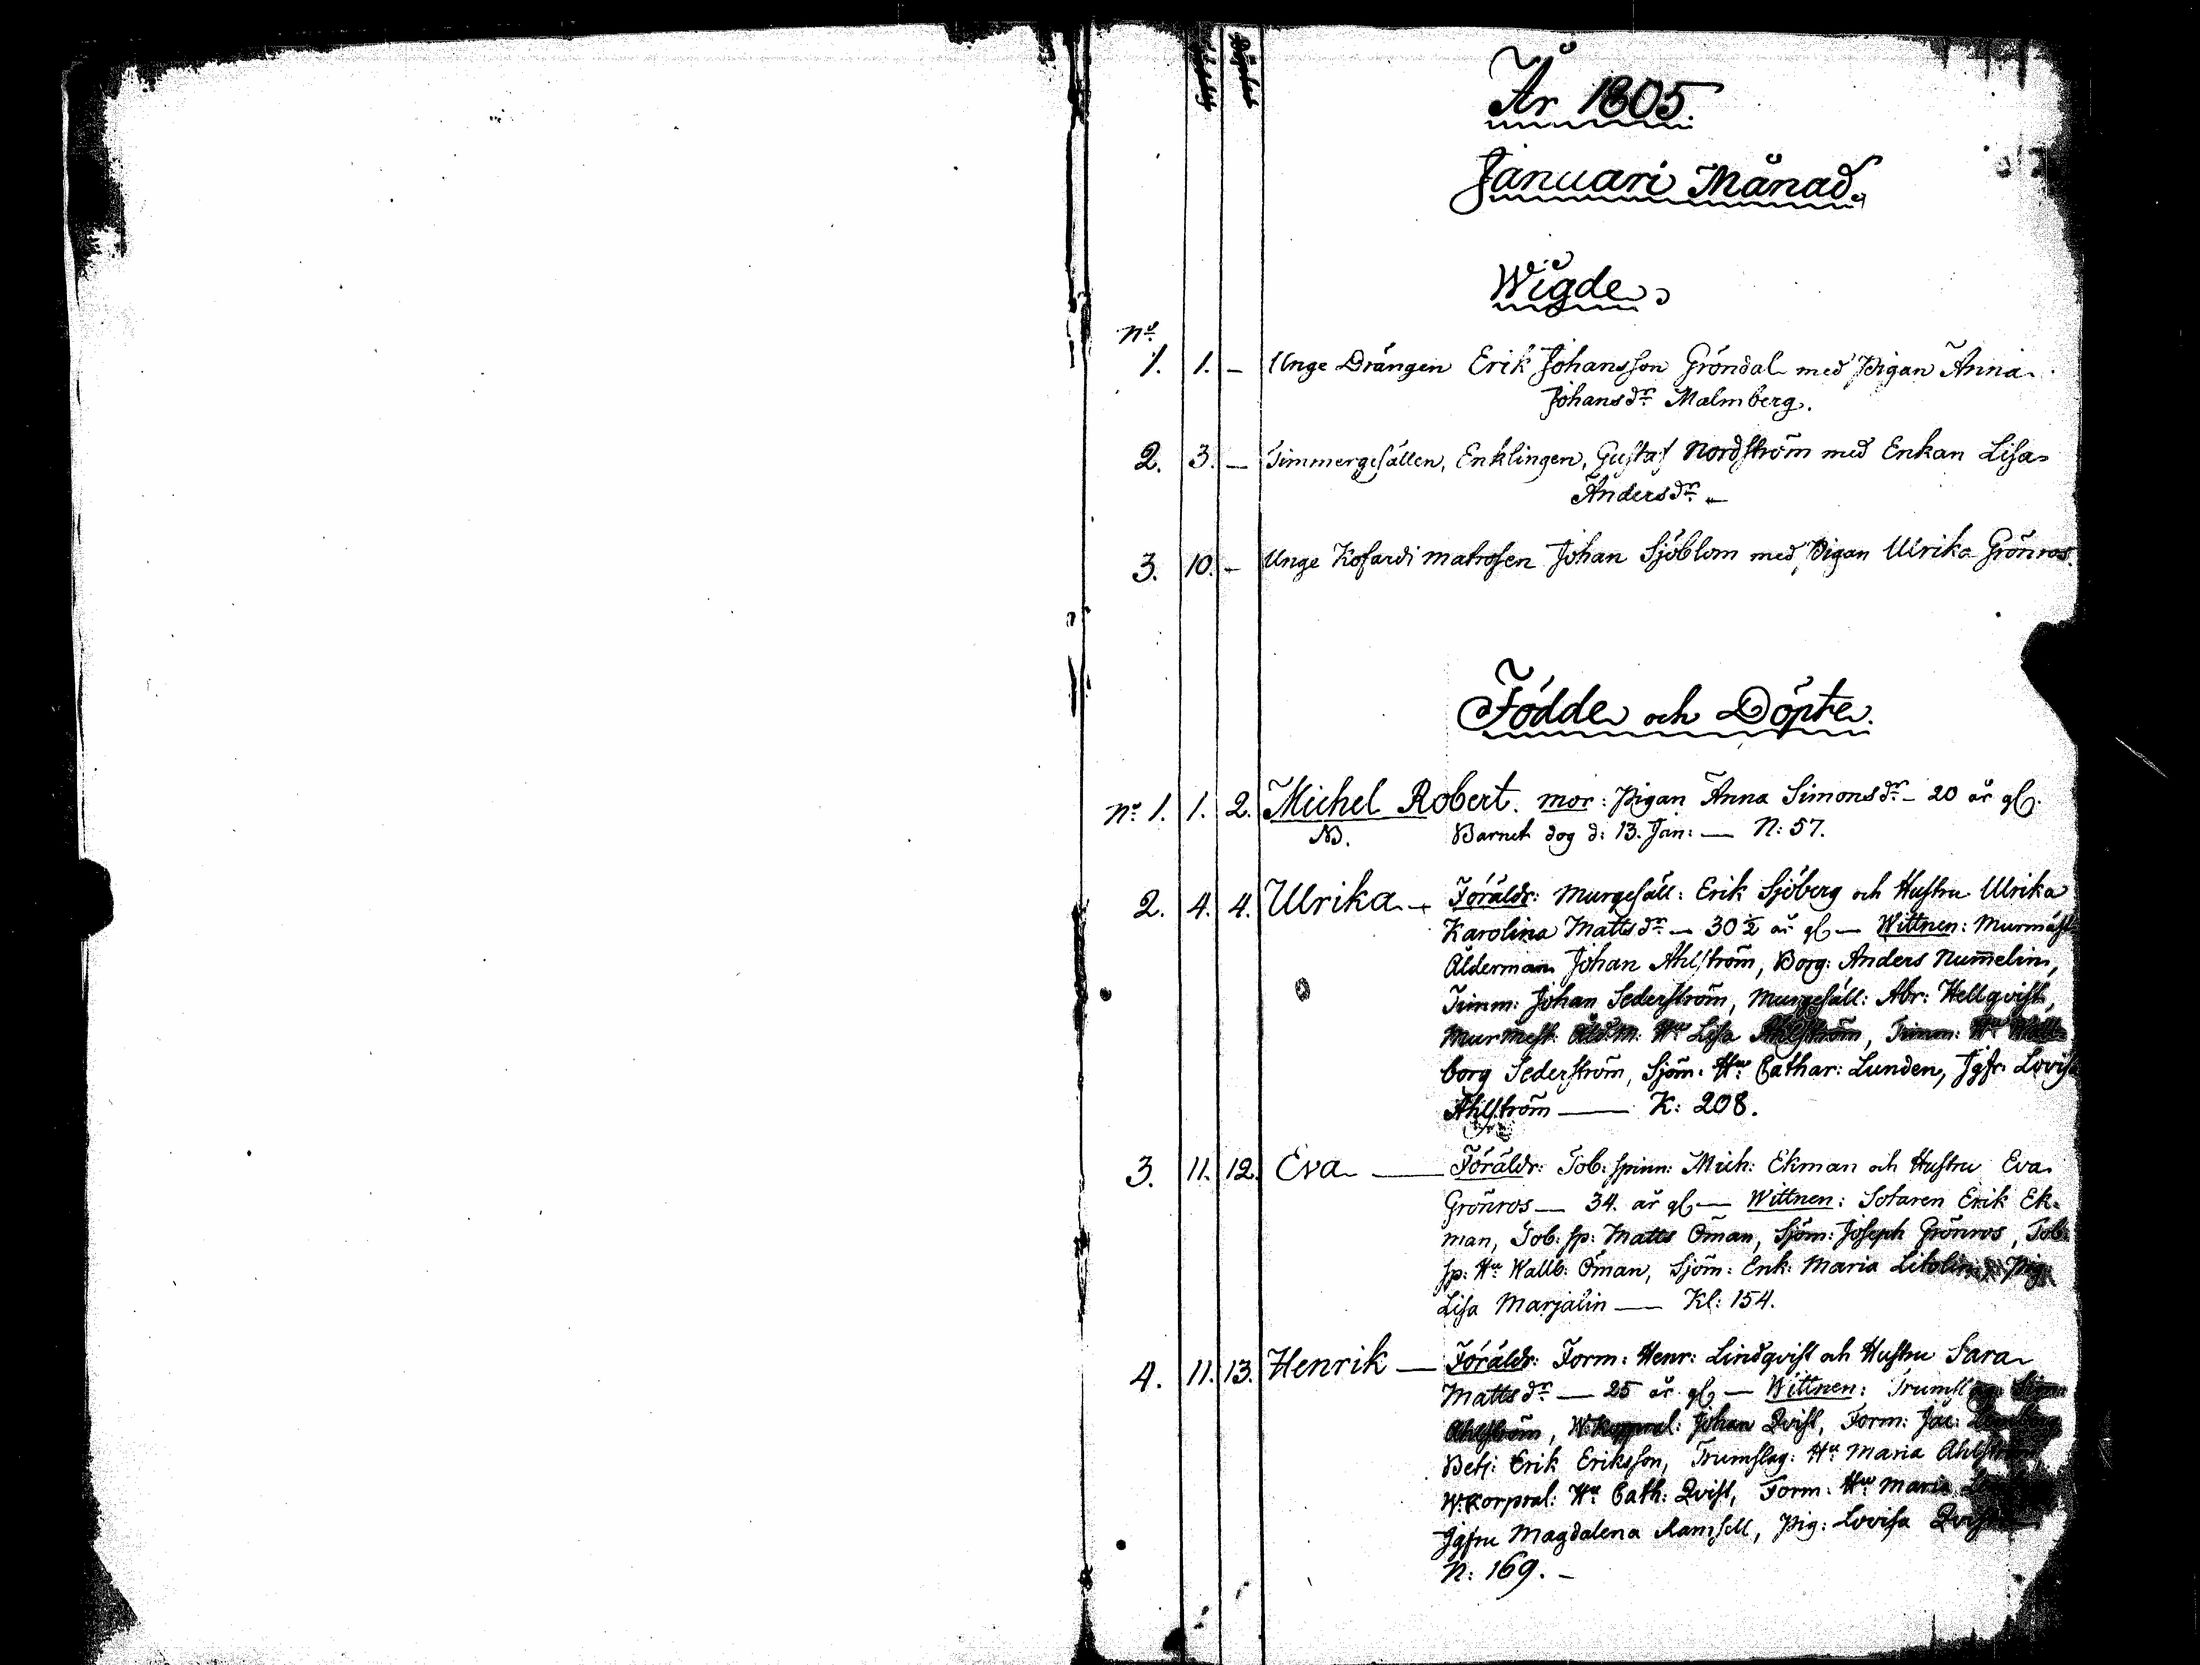 År 1805.
Januari Månad.
Wigde
No
1. 1. — Unge Drängen Erik Johansson Gröndal med Pigan Anna
Johansdr Malmberg.
2. 3. — Timmergesällen, Enklingen, Gustaf Nordström med Enkan Lisa
Andersdr —
3. 10. — Unge Kofardi matrosen Johan Sjöblom med Pigan Ulrika Grönros.
Födde och Döpte.
No 1. 1. 2. Michel Robert. mor: Pigan Anna Simonsdr — 20 år gl.
NB. Barnet dog d: 13. Jan: — N: 57.
2. 4. 4. Ulrika — Föräldr: Murgesäll: Erik Sjöberg och Hustru Ulrika
Karolina Mattsdr — 30 ½ år gl — Wittnen: Murmäst
Ålderman Johan Ahlström, Borg: Anders Num̄elin,
Timm: Johan Sederström, Murgesäll: Abr: Hellqvist,
Murmest: Åld:M: Hu Lisa Ahlström, Timm: Hu Wall
borg Sederström, Sjöm: Hu Cathar: Lunden, Jgfr Lovisa
Ahlström — K: 208.
3. 11. 12. Eva — Föräldr: Tob: spinn: Mich: Ekman och Hustru Eva
Grönros — 34. år gl — Wittnen: Sotaren Erik Ek-
man, Tob: sp: Matts Öman, Sjöm: Joseph Grönros, Tob:
sp: Hu Wallb: Öman, Sjöm: Enk: Maria Litolin, Pig:
Lisa Marjalin — Kl: 154.
4. 11. 13. Henrik — Föräldr: Form: Henr: Lindqvist och Hustru Sara
Mattsdr — 25 år gl — Wittnen: Trumslag:
Ahlström, W:Korporal: Johan Qvist, Form: Jac:
Betj: Erik Eriksson, Trumslag: Hu Maria Ahlström
W:Korporal: Hu Cath: Qvist, Form: Hu Maria
Jgfru Magdalena Ramsell, Pig: Lovisa Qvist
N: 169. —